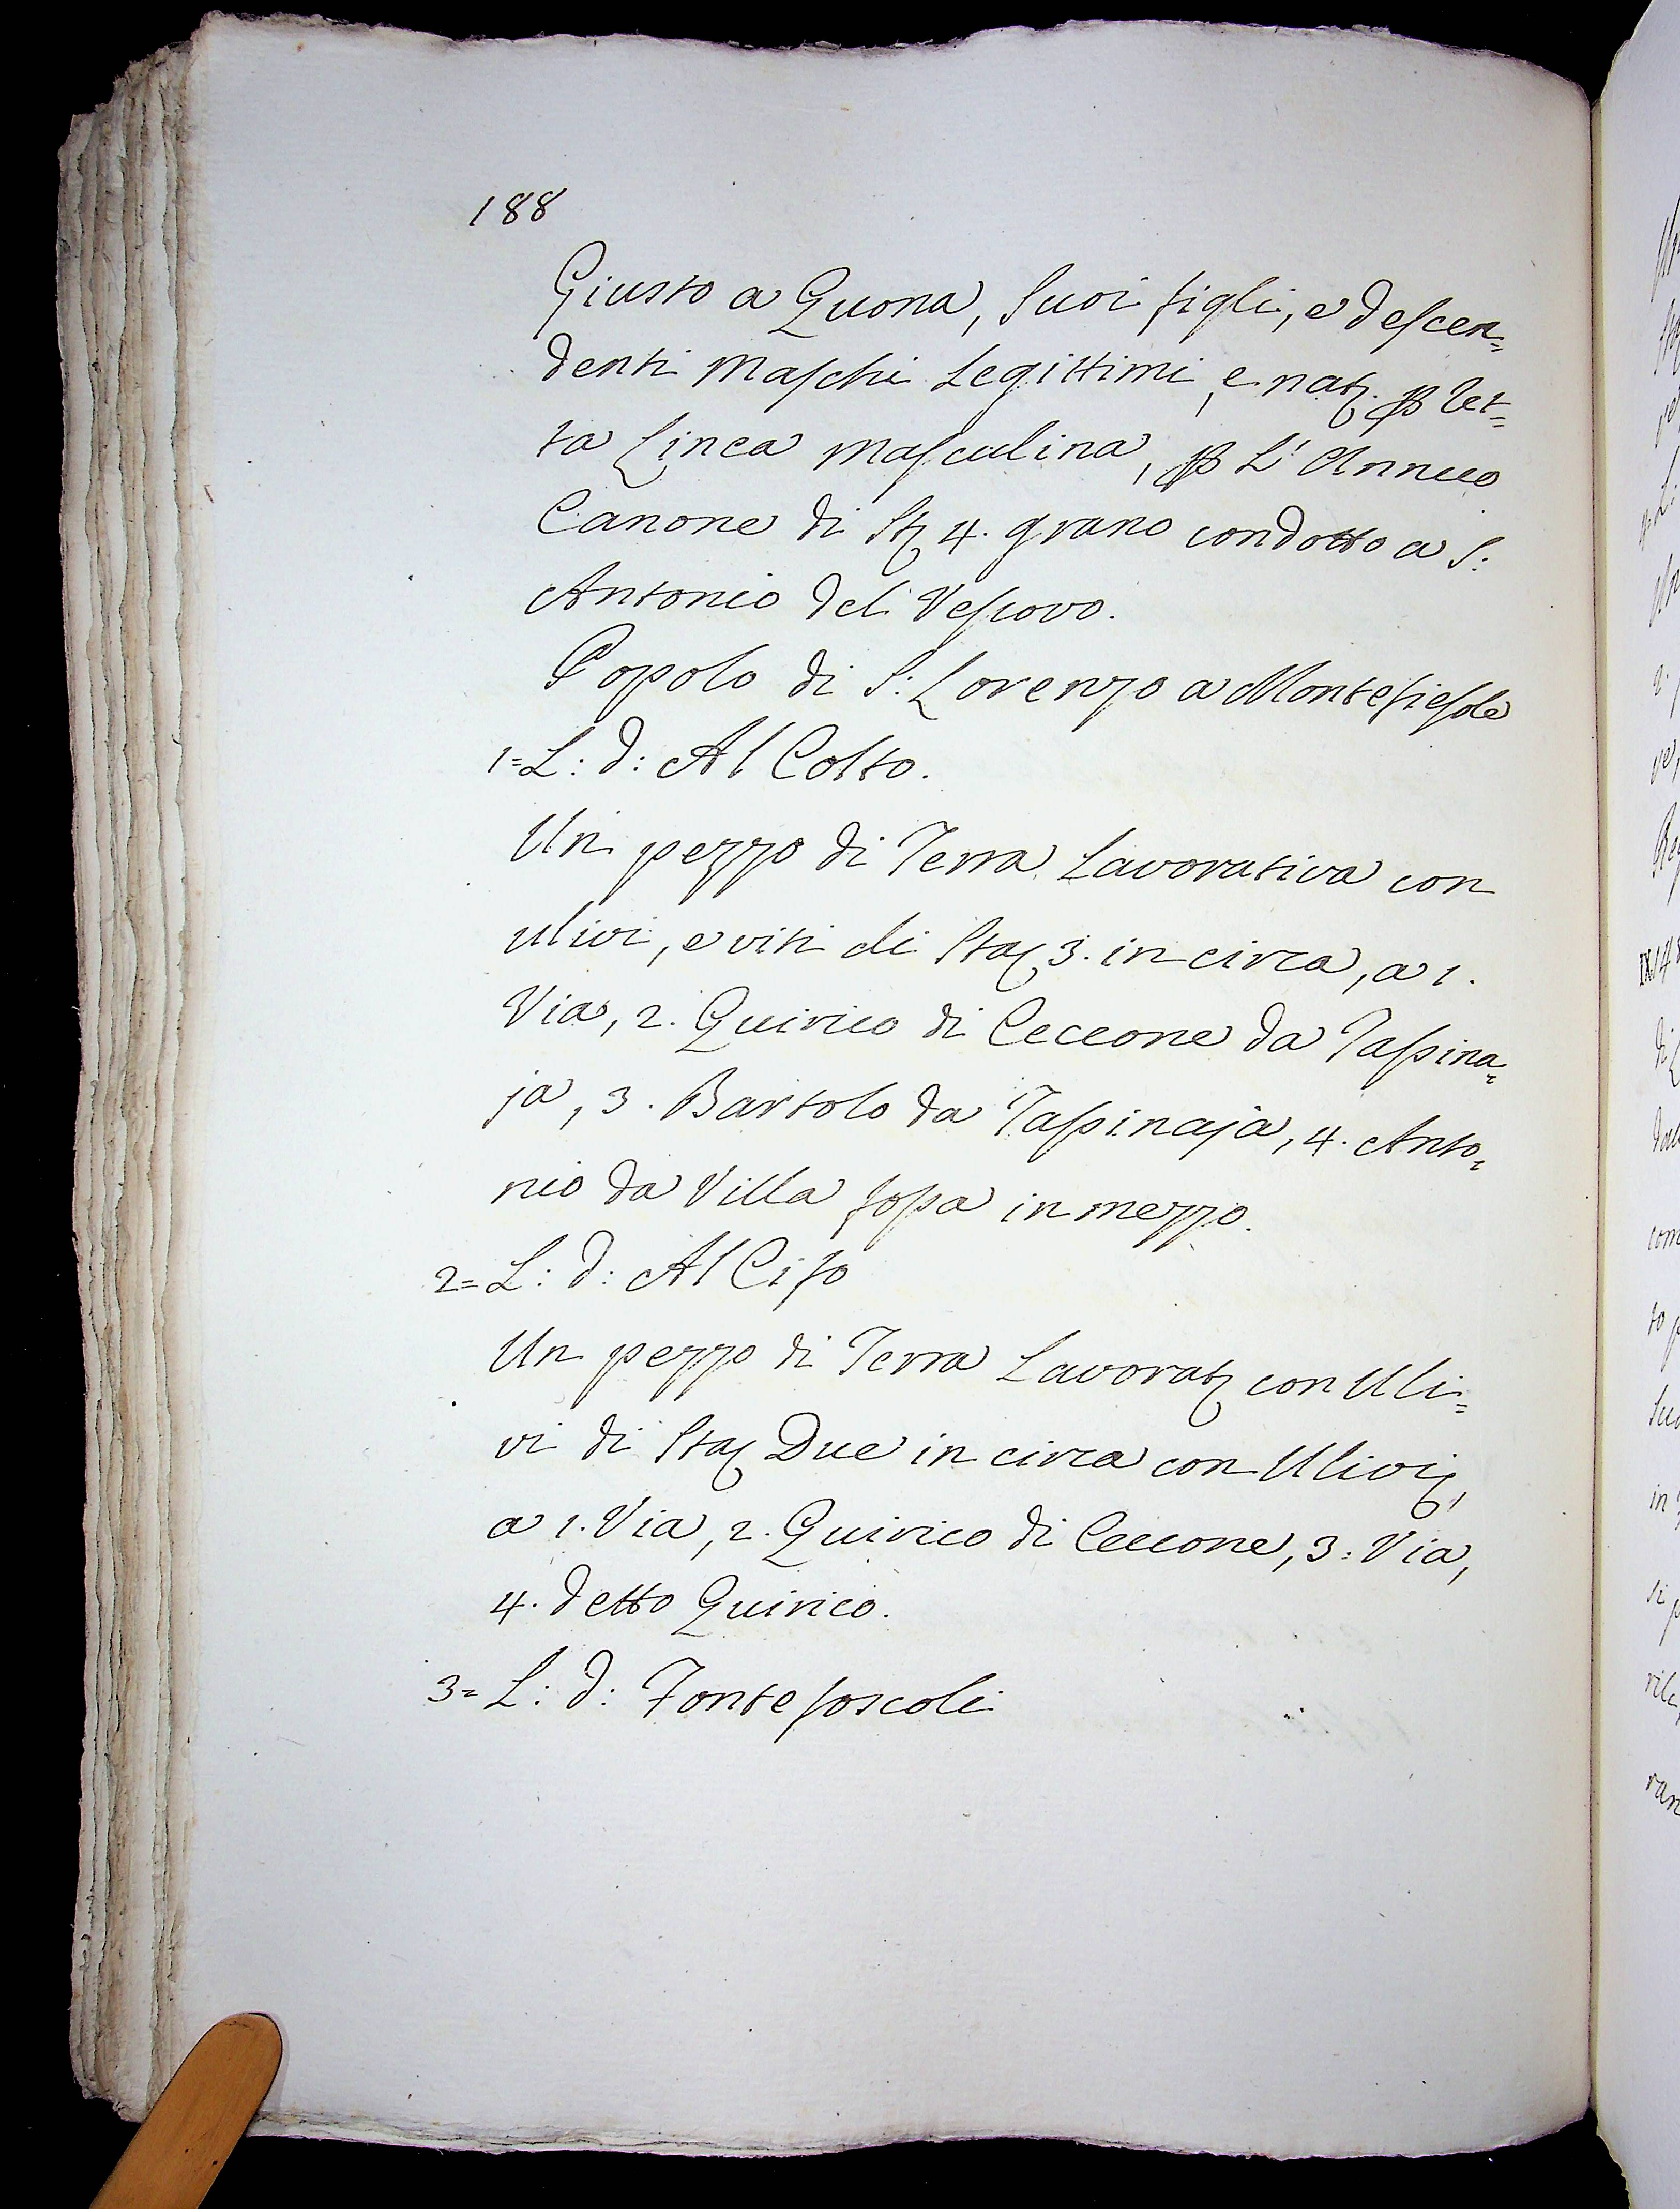 188
Giusto a Quona, suoi figli, e descen=
denti Maschi Legittimi, e nat. p ret=
ta Linea masculina, p L' Annuo
Canone di St. 4. grano condotto a S:
Antonio del Vescovo.
Popolo di S: Lorenzo a Montefiesole
1= L: d: Al Colto.
Un pezzo di Terra Lavorativa con
ulivi, e viti di Sta 3. in circa, a 1.
Via, 2. Quirico di Ceccone da Tassina=
ja, 3. Bartolo da Tassinaja, 4. Anto=
nio da Villa fossa in mezzo.
2= L: d: Al Cifo
Un pezzo di Terra Lavorat con Uli=
vi di Sta Due in circa con Ulivi,
a 1. Via, 2. Quirico di Ceccone, 3. Via,
4. detto Quirico.
3= L: d: Fontefoscoli